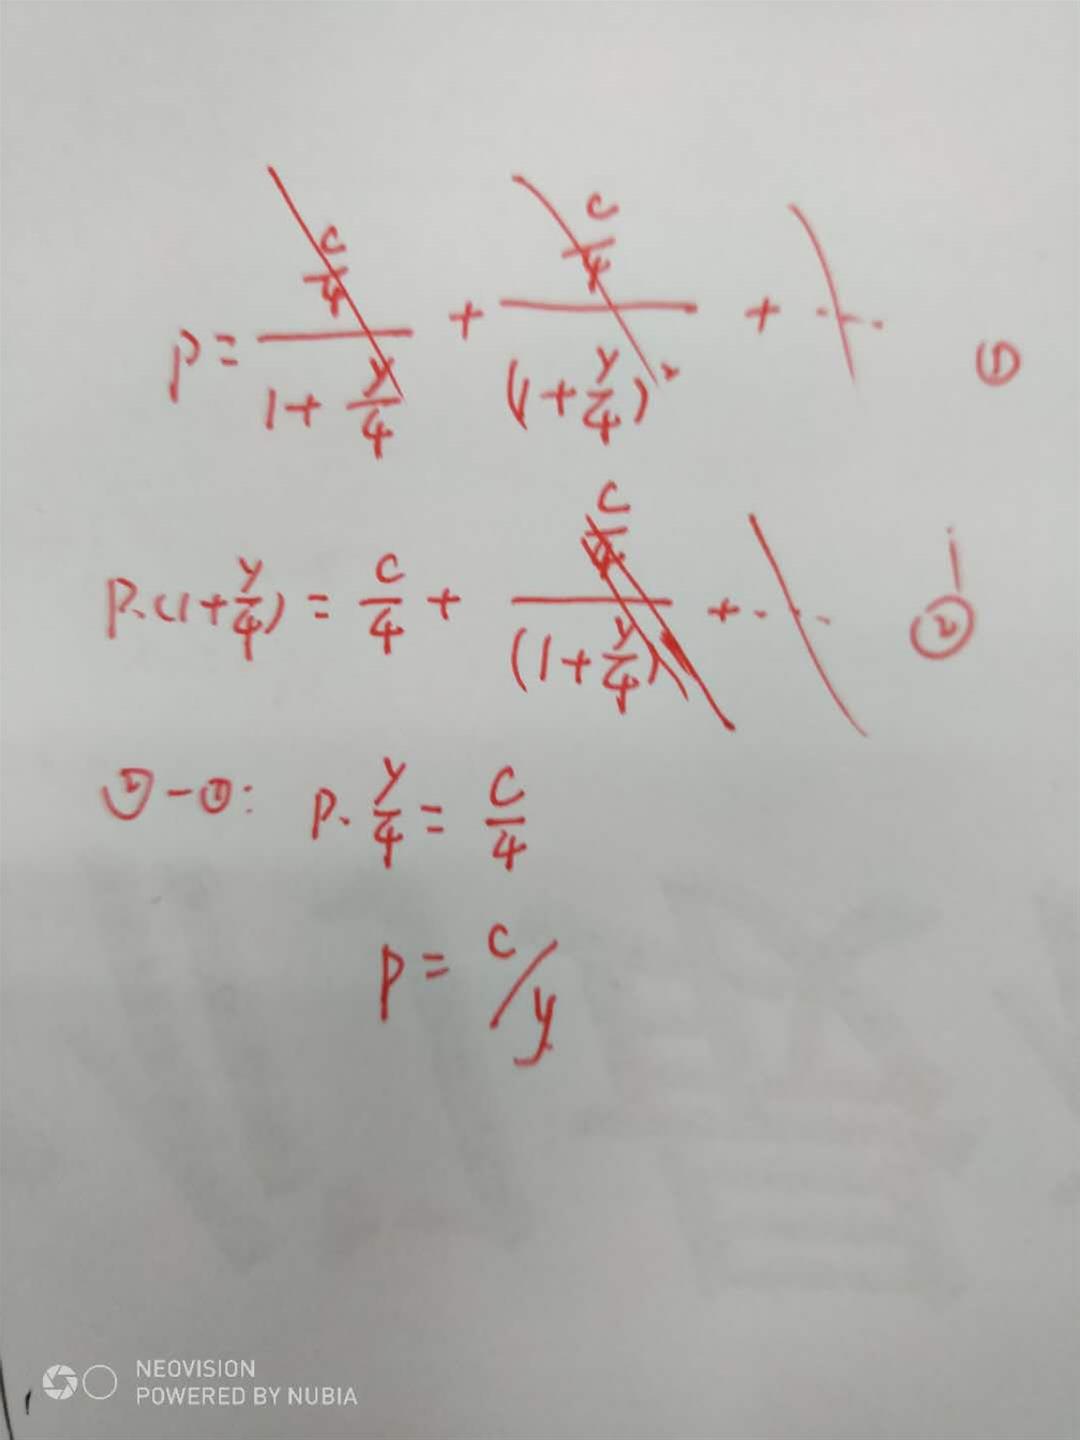 P = (c/4)/(1 + y/4) + (c/4)/(1 + y/4)² + ... ①
P·(1 + y/4) = c/4 + (c/4)/(1 + y/4) + ... ②
② - ①: P·y/4 = c/4
P = c/y
NEOVISION
POWERED BY NUBIA